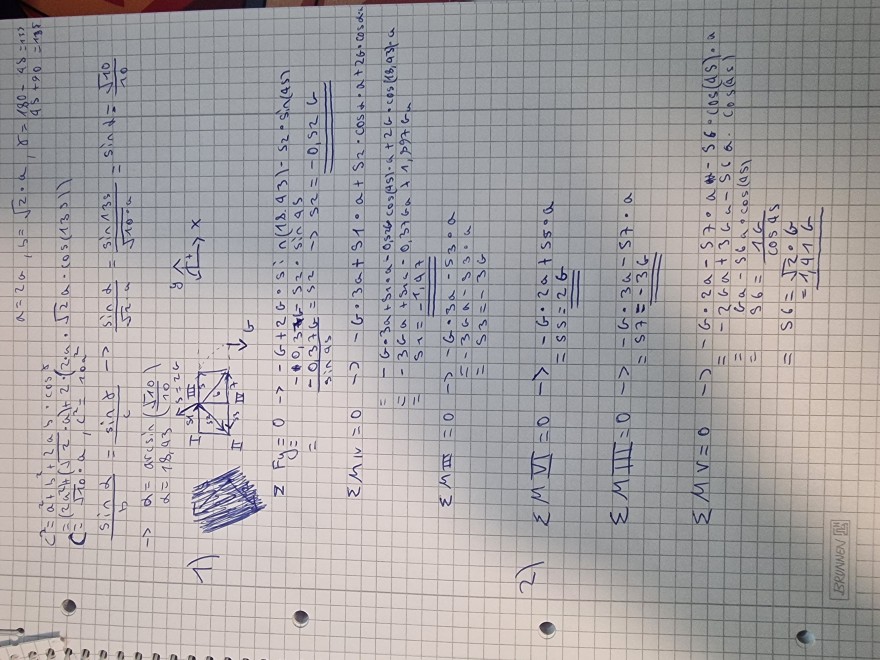 a = 2a , b = √2 · a , γ = 180 - 45 = 135
45 + 90 = 135
c² = a² + b² + 2ab · cos γ
C = (2a)² + (√2 · a)² + 2 · (2a · √2a · cos(135))
C = √10 · a , c² = 10a²
sin α / b = sin γ / c → sin α / √2 a = sin 135 / √10 · a = sin α = √10 / 10
→ α = arcsin (√10 / 10)
α = 18,43
S = 2G
y
x
1)
I
III
II
IV
G
Σ Fy = 0 → -G + 2G · sin(18,43) - S2 · sin(45)
= -0,37G - S2 · sin 45
= -0,37G / sin 45 = S2 → S2 = -0,52 G
Σ M IV = 0 → -G · 3a + S1 · a + S2 · cos α · a + 2G · cos α · a
= -G · 3a + S1 · a - 0,52G · cos(45) · a + 2G · cos(18,43) · a
= -3Ga + S1a - 0,37Ga + 1,897Ga
= S1 = -1,47
Σ M III = 0 → -G · 3a - S3 · a
= -3Ga - S3 · a
= S3 = -3G
2)
Σ M VI = 0 → -G · 2a + S5 · a
= S5 = 2G
Σ M III = 0 → -G · 3a - S7 · a
= S7 = -3G
Σ M V = 0 → -G · 2a - S7 · a - S6 · cos(45) · a
= -2Ga + 3Ga - S6a · cos(45)
= Ga - S6a · cos(45)
= S6 = 1G / cos 45
= S6 = √2 · G
= 1,41G
BRUNNEN